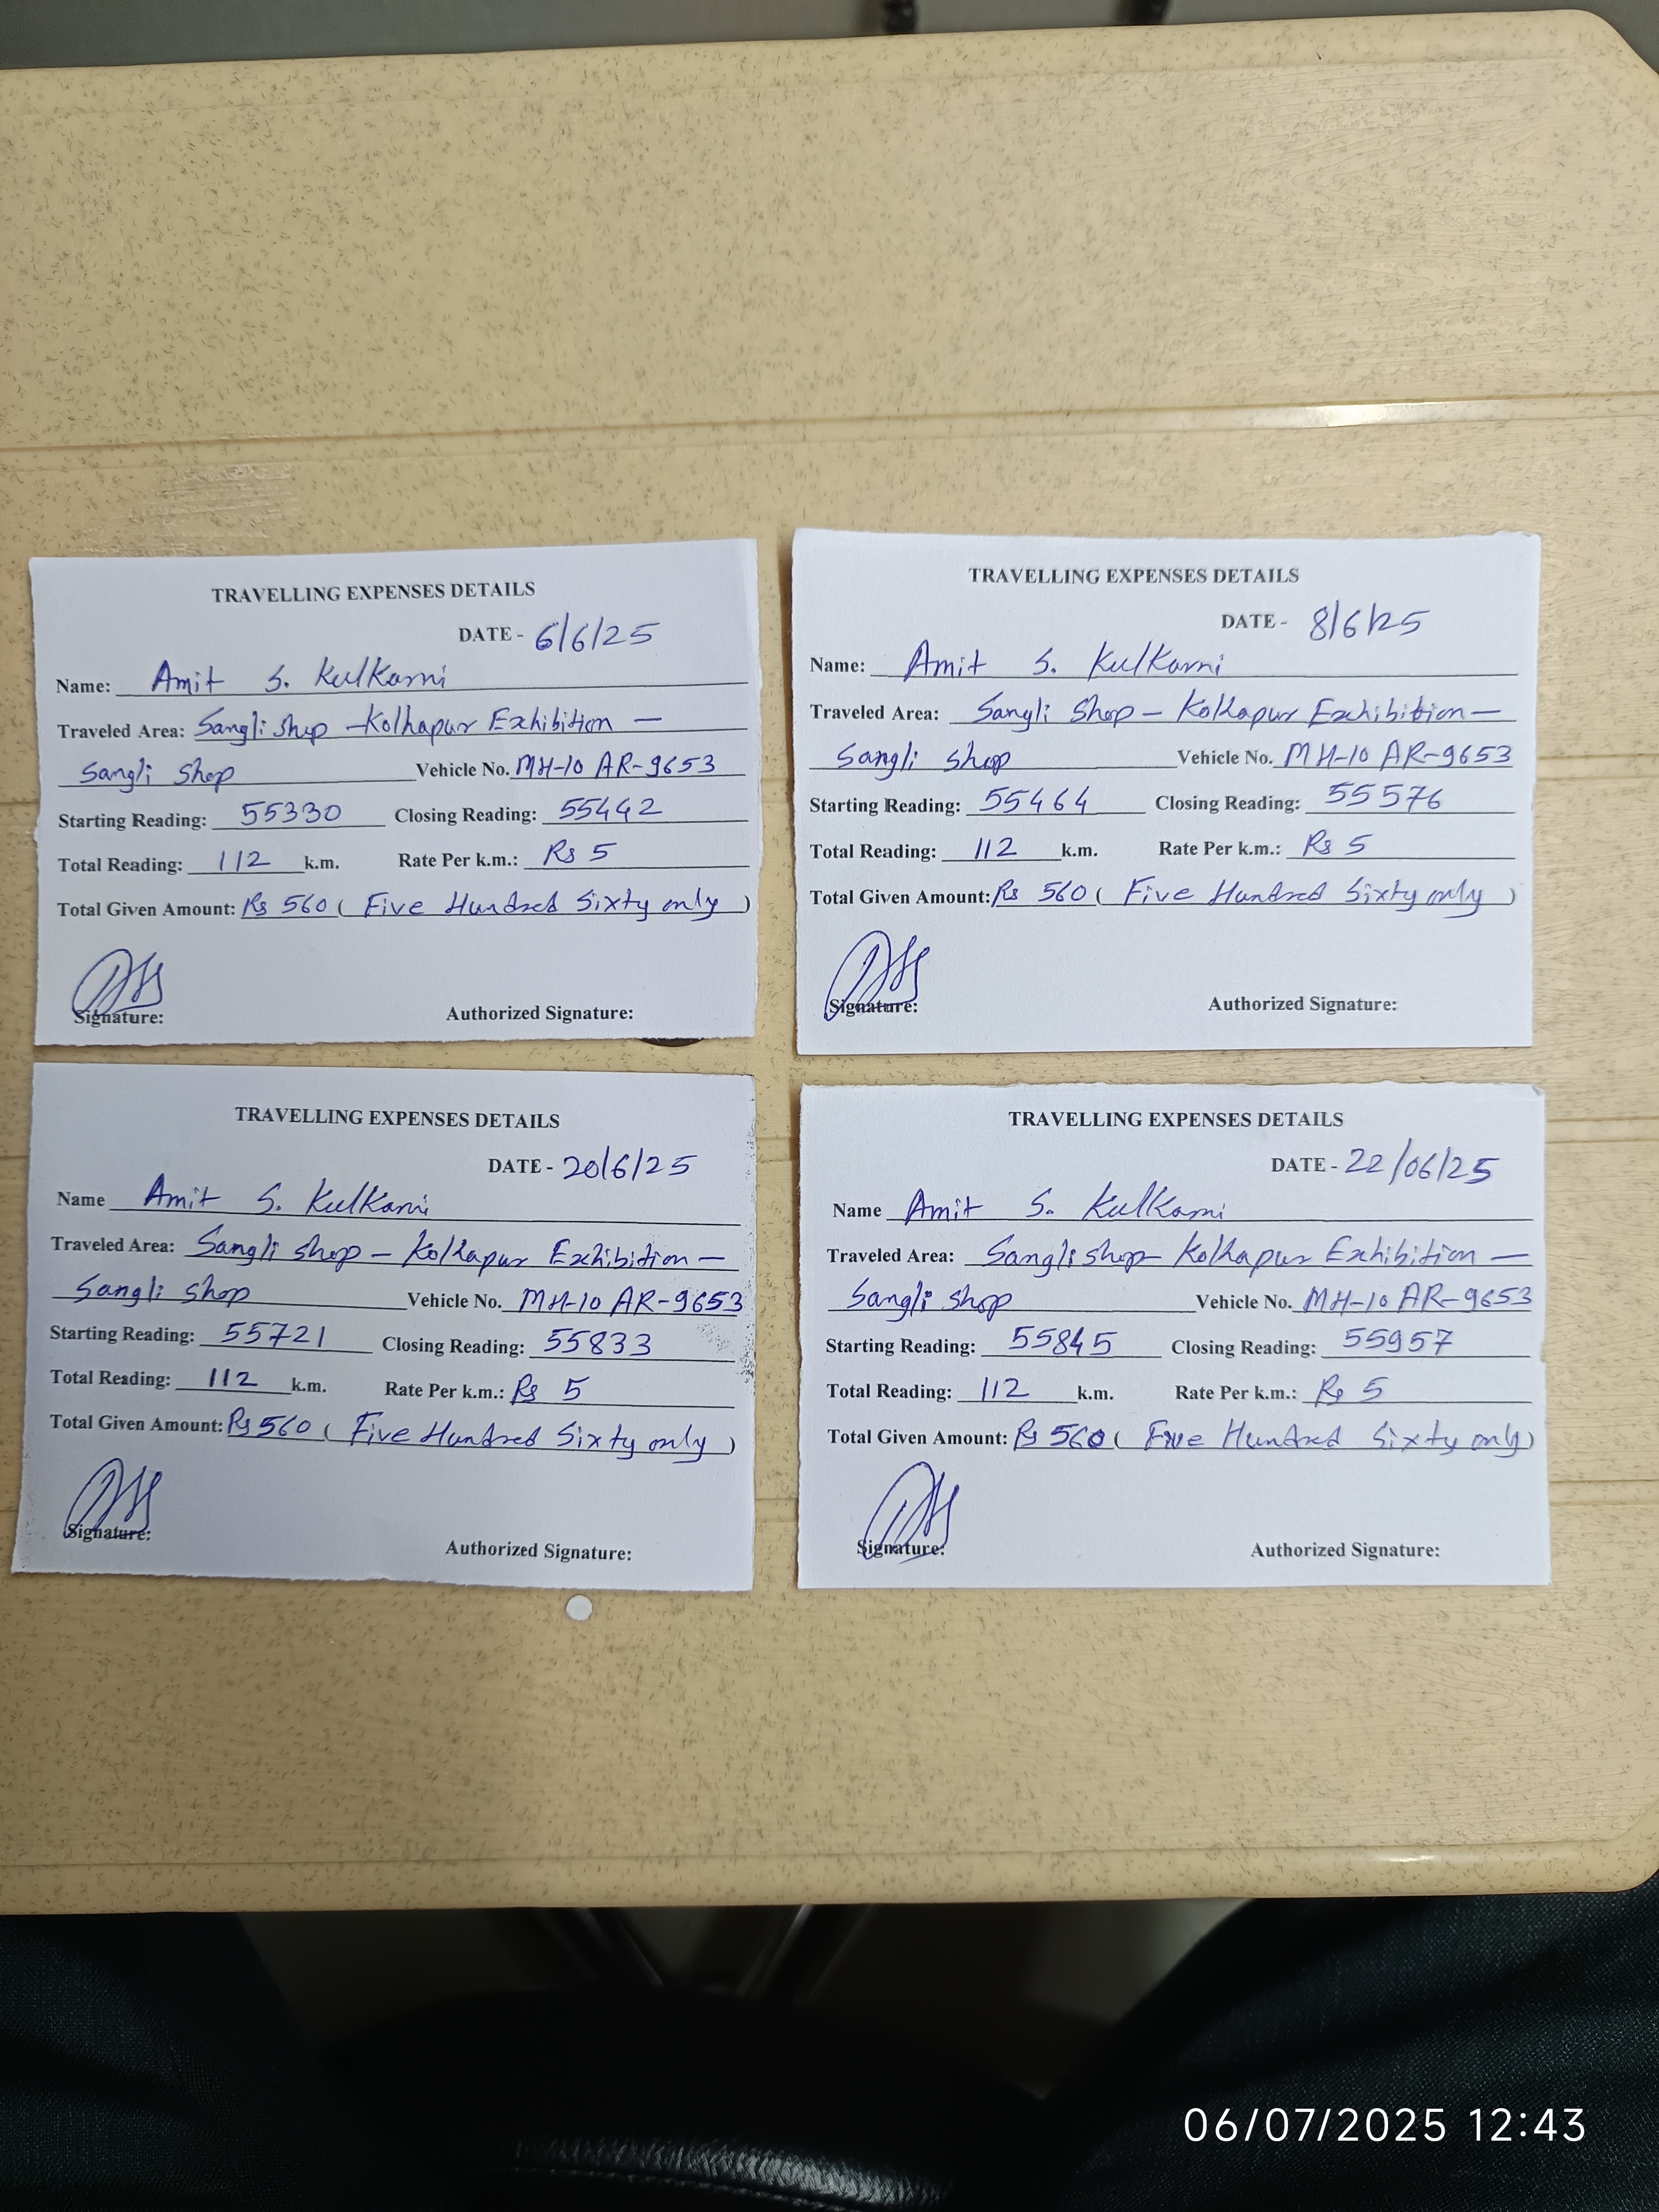 TRAVELLING EXPENSES DETAILS
DATE - 6/6/25
Name: Amit S. Kulkarni
Traveled Area: Sangli Shop - Kolhapur Exhibition -
Sangli Shop Vehicle No. MH-10 AR-9653
Starting Reading: 55330 Closing Reading: 55442
Total Reading: 112 k.m. Rate Per k.m.: Rs 5
Total Given Amount: Rs 560 ( Five Hundred Sixty only )
Signature: Authorized Signature:
TRAVELLING EXPENSES DETAILS
DATE - 8/6/25
Name: Amit S. Kulkarni
Traveled Area: Sangli Shop - Kolhapur Exhibition -
Sangli shop Vehicle No. MH-10 AR-9653
Starting Reading: 55464 Closing Reading: 55576
Total Reading: 112 k.m. Rate Per k.m.: Rs 5
Total Given Amount: Rs 560 ( Five Hundred Sixty only )
Signature: Authorized Signature:
TRAVELLING EXPENSES DETAILS
DATE - 20/6/25
Name Amit S. Kulkarni
Traveled Area: Sangli shop - Kolhapur Exhibition -
Sangli shop Vehicle No. MH-10 AR-9653
Starting Reading: 55721 Closing Reading: 55833
Total Reading: 112 k.m. Rate Per k.m.: Rs 5
Total Given Amount: Rs 560 ( Five Hundred Sixty only )
Signature: Authorized Signature:
TRAVELLING EXPENSES DETAILS
DATE - 22/06/25
Name Amit S. Kulkarni
Traveled Area: Sangli shop - Kolhapur Exhibition -
Sangli shop Vehicle No. MH-10 AR-9653
Starting Reading: 55845 Closing Reading: 55957
Total Reading: 112 k.m. Rate Per k.m.: Rs 5
Total Given Amount: Rs 560 ( Five Hundred Sixty only )
Signature: Authorized Signature:
06/07/2025 12:43